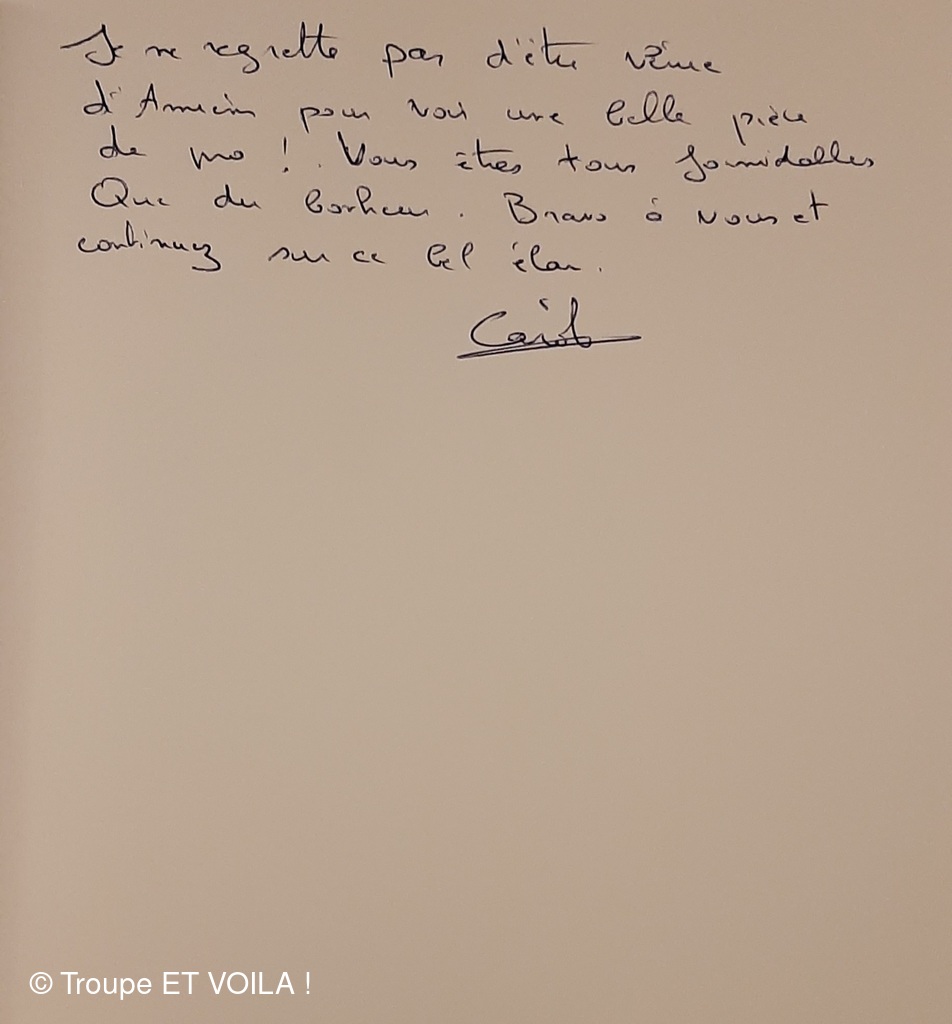 Je ne regrette pas d'être venue
d'Amiens pour voir une belle pièce
de ! Vous êtes tous formidables
Que du bonheur. Bravo à vous et
continuez sur ce bel élan.
© Troupe ET VOILA !